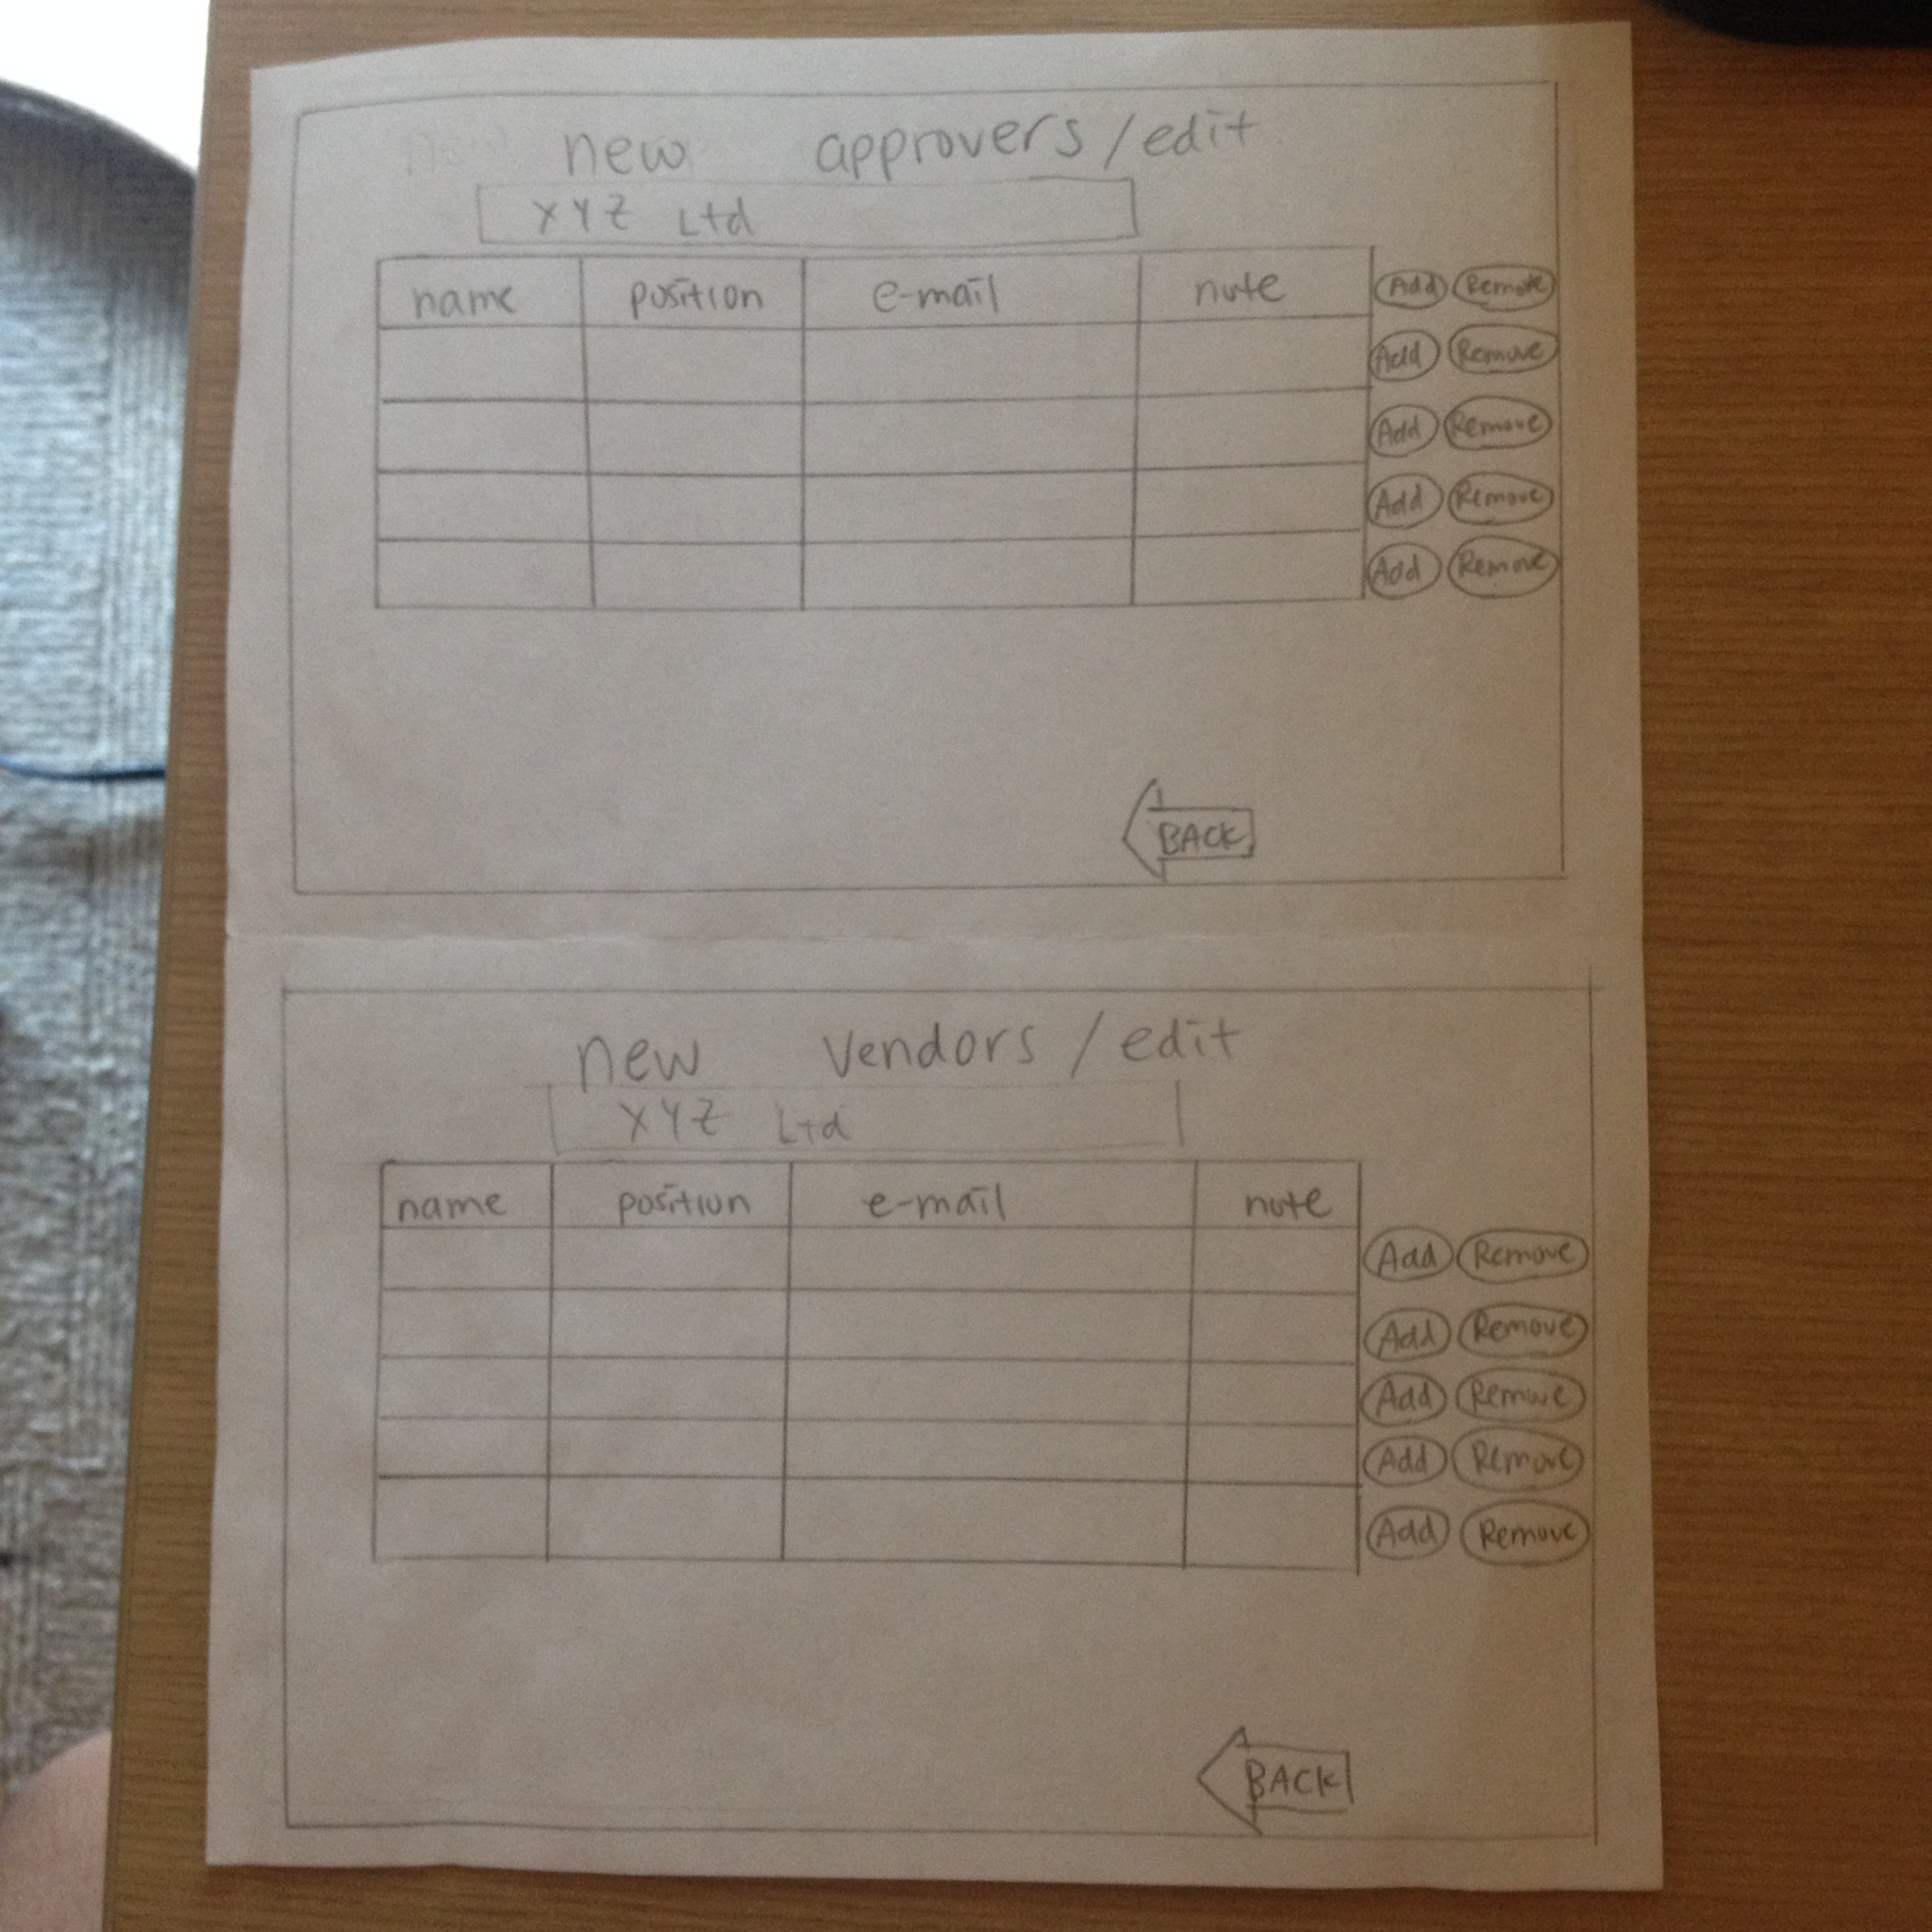 new approvers/edit
XYZ Ltd
name position e-mail note Add Remove
Add Remove
Add Remove
Add Remove
Add Remove
BACK
new vendors/edit
XYZ Ltd
name position e-mail note
Add Remove
Add Remove
Add Remove
Add Remove
Add Remove
BACK